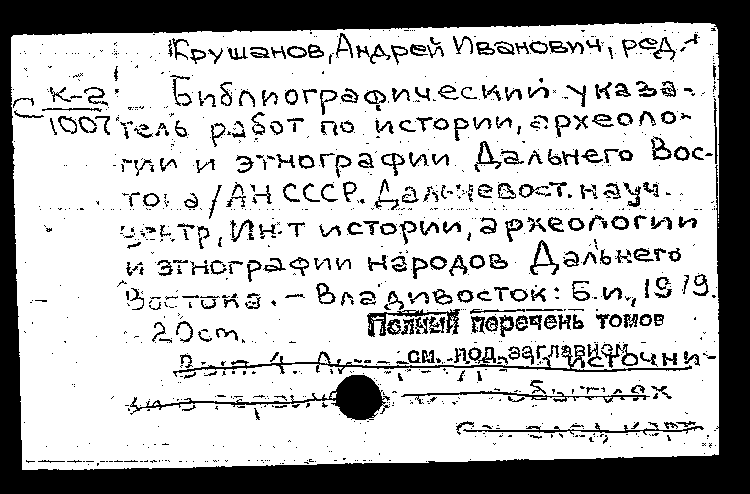 Крушанов, Андрей Иванович, ред.
С К-2 Библиографический указа-
1007 тель работ по истории, археоло-
гии и этнографии Дальнего Вос-
тока / АН СССР. Дальневост. науч.
центр, Ин-т истории, археологии
и этнографии народов Дальнего
Востока. - Владивосток: Б.и., 1979.
20 cm.
Полный перечень томов
см. под заглавием
Вып. 4. источни-
событиях
См. след. карт.